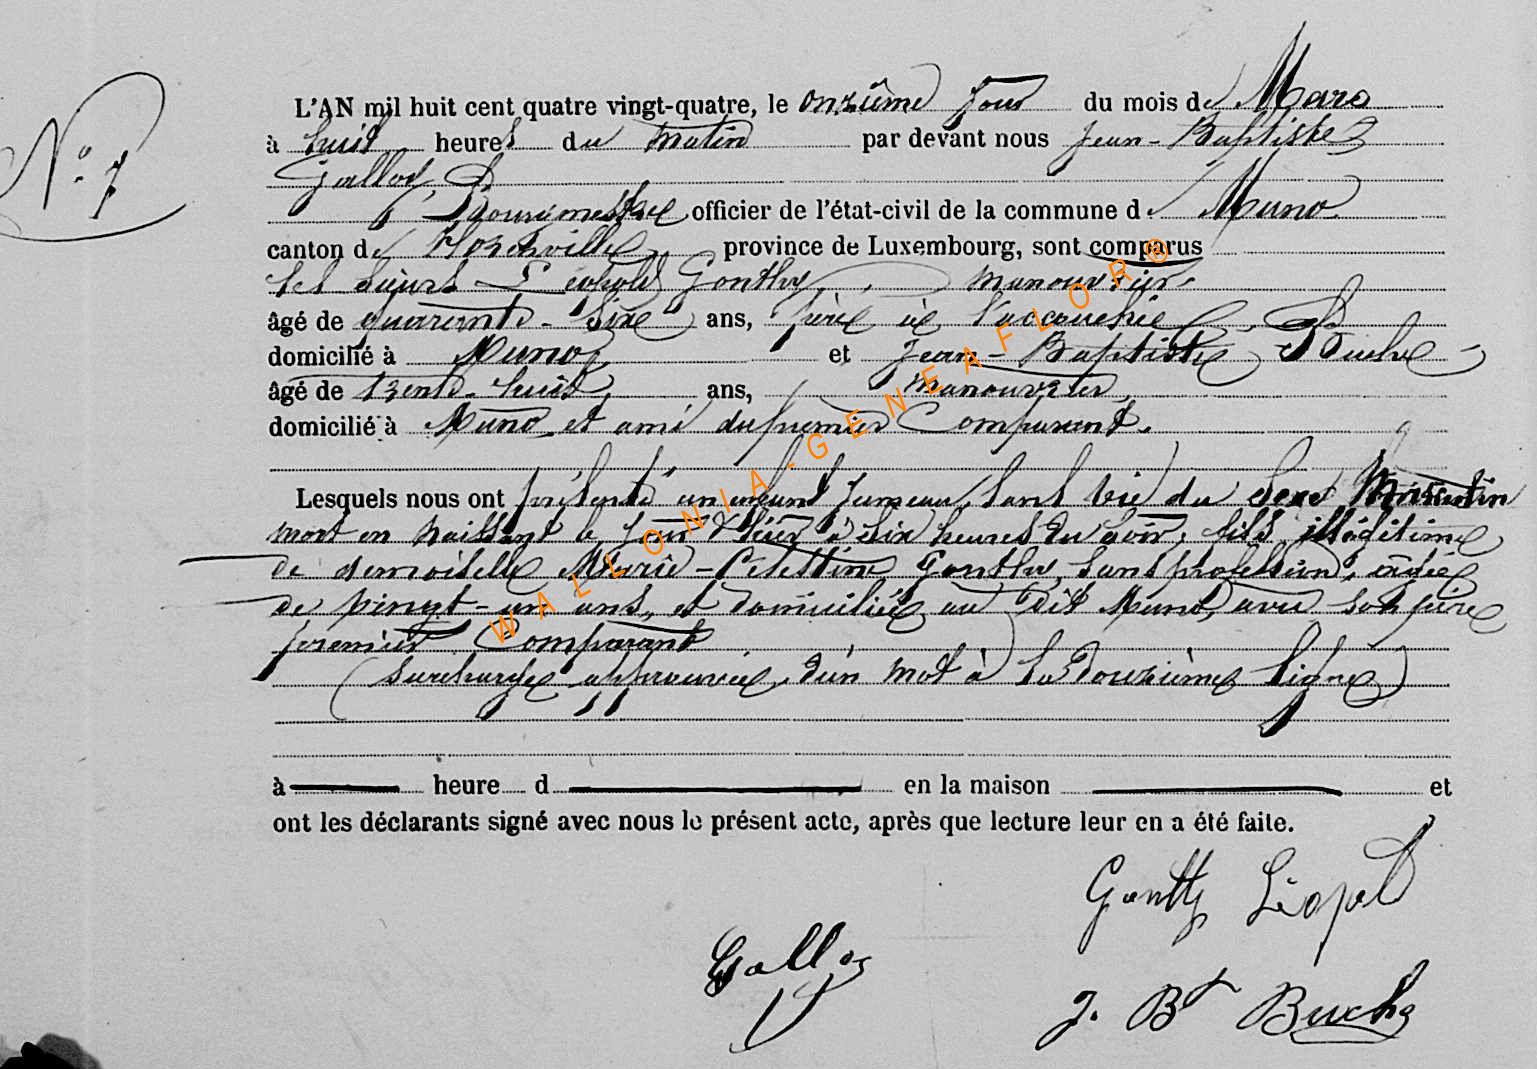 N° 7
L'AN mil huit cent quatre vingt-quatre, le onzième jour du mois de Mars
à huit heures du matin par devant nous Jean-Baptiste
Galloy,
Bourgmestre officier de l'état-civil de la commune de Muno
canton de Florenville province de Luxembourg, sont comparus
les sieurs Léopold Gonthy, manouvrier,
âgé de quarante-six ans, père de l'accouchée,
domicilié à Muno, et Jean-Baptiste Buche
âgé de trente-huit ans, manouvrier,
domicilié à Muno et ami du premier Comparant.
Lesquels nous ont présenté un enfant jumeau, sans vie du sexe Masculin
mort en naissant le jour d'hier à six heures du soir, fils illégitime
de demoiselle Marie-Célestine Gonthy, sans profession, âgée
de vingt-un ans, et domiciliée au dit Muno, avec son père
premier Comparant
(surcharge approuvée d'un mot à la douzième ligne)
à heure d en la maison et
ont les déclarants signé avec nous le présent acte, après que lecture leur en a été faite.
Gonthy Léopold
Galloy
J. Bt Buche
WALLONIA-GENEAFLOR®